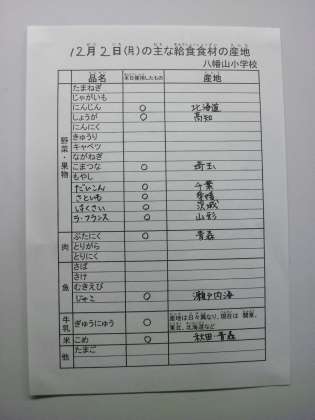 12月2日(月)の主な給食食材の産地
八幡山小学校
品名 主に使用したもの 産地
野菜・果物
たまねぎ
じゃがいも
にんじん ○ 北海道
しょうが ○ 高知
にんにく
きゅうり
キャベツ
ながねぎ
こまつな ○ 埼玉
もやし
だいこん ○ 千葉
さといも ○ 愛媛
はくさい ○ 茨城
ラ・フランス ○ 山形
肉
ぶたにく ○ 青森
とりがら
とりにく
魚
さば
さけ
むきえび
じゃこ ○ 瀬戸内海
牛乳 ぎゅうにゅう ○ 産地は日々異なり、現在は 関東、
東北、北海道など
米 こめ ○ 秋田・青森
他 たまご